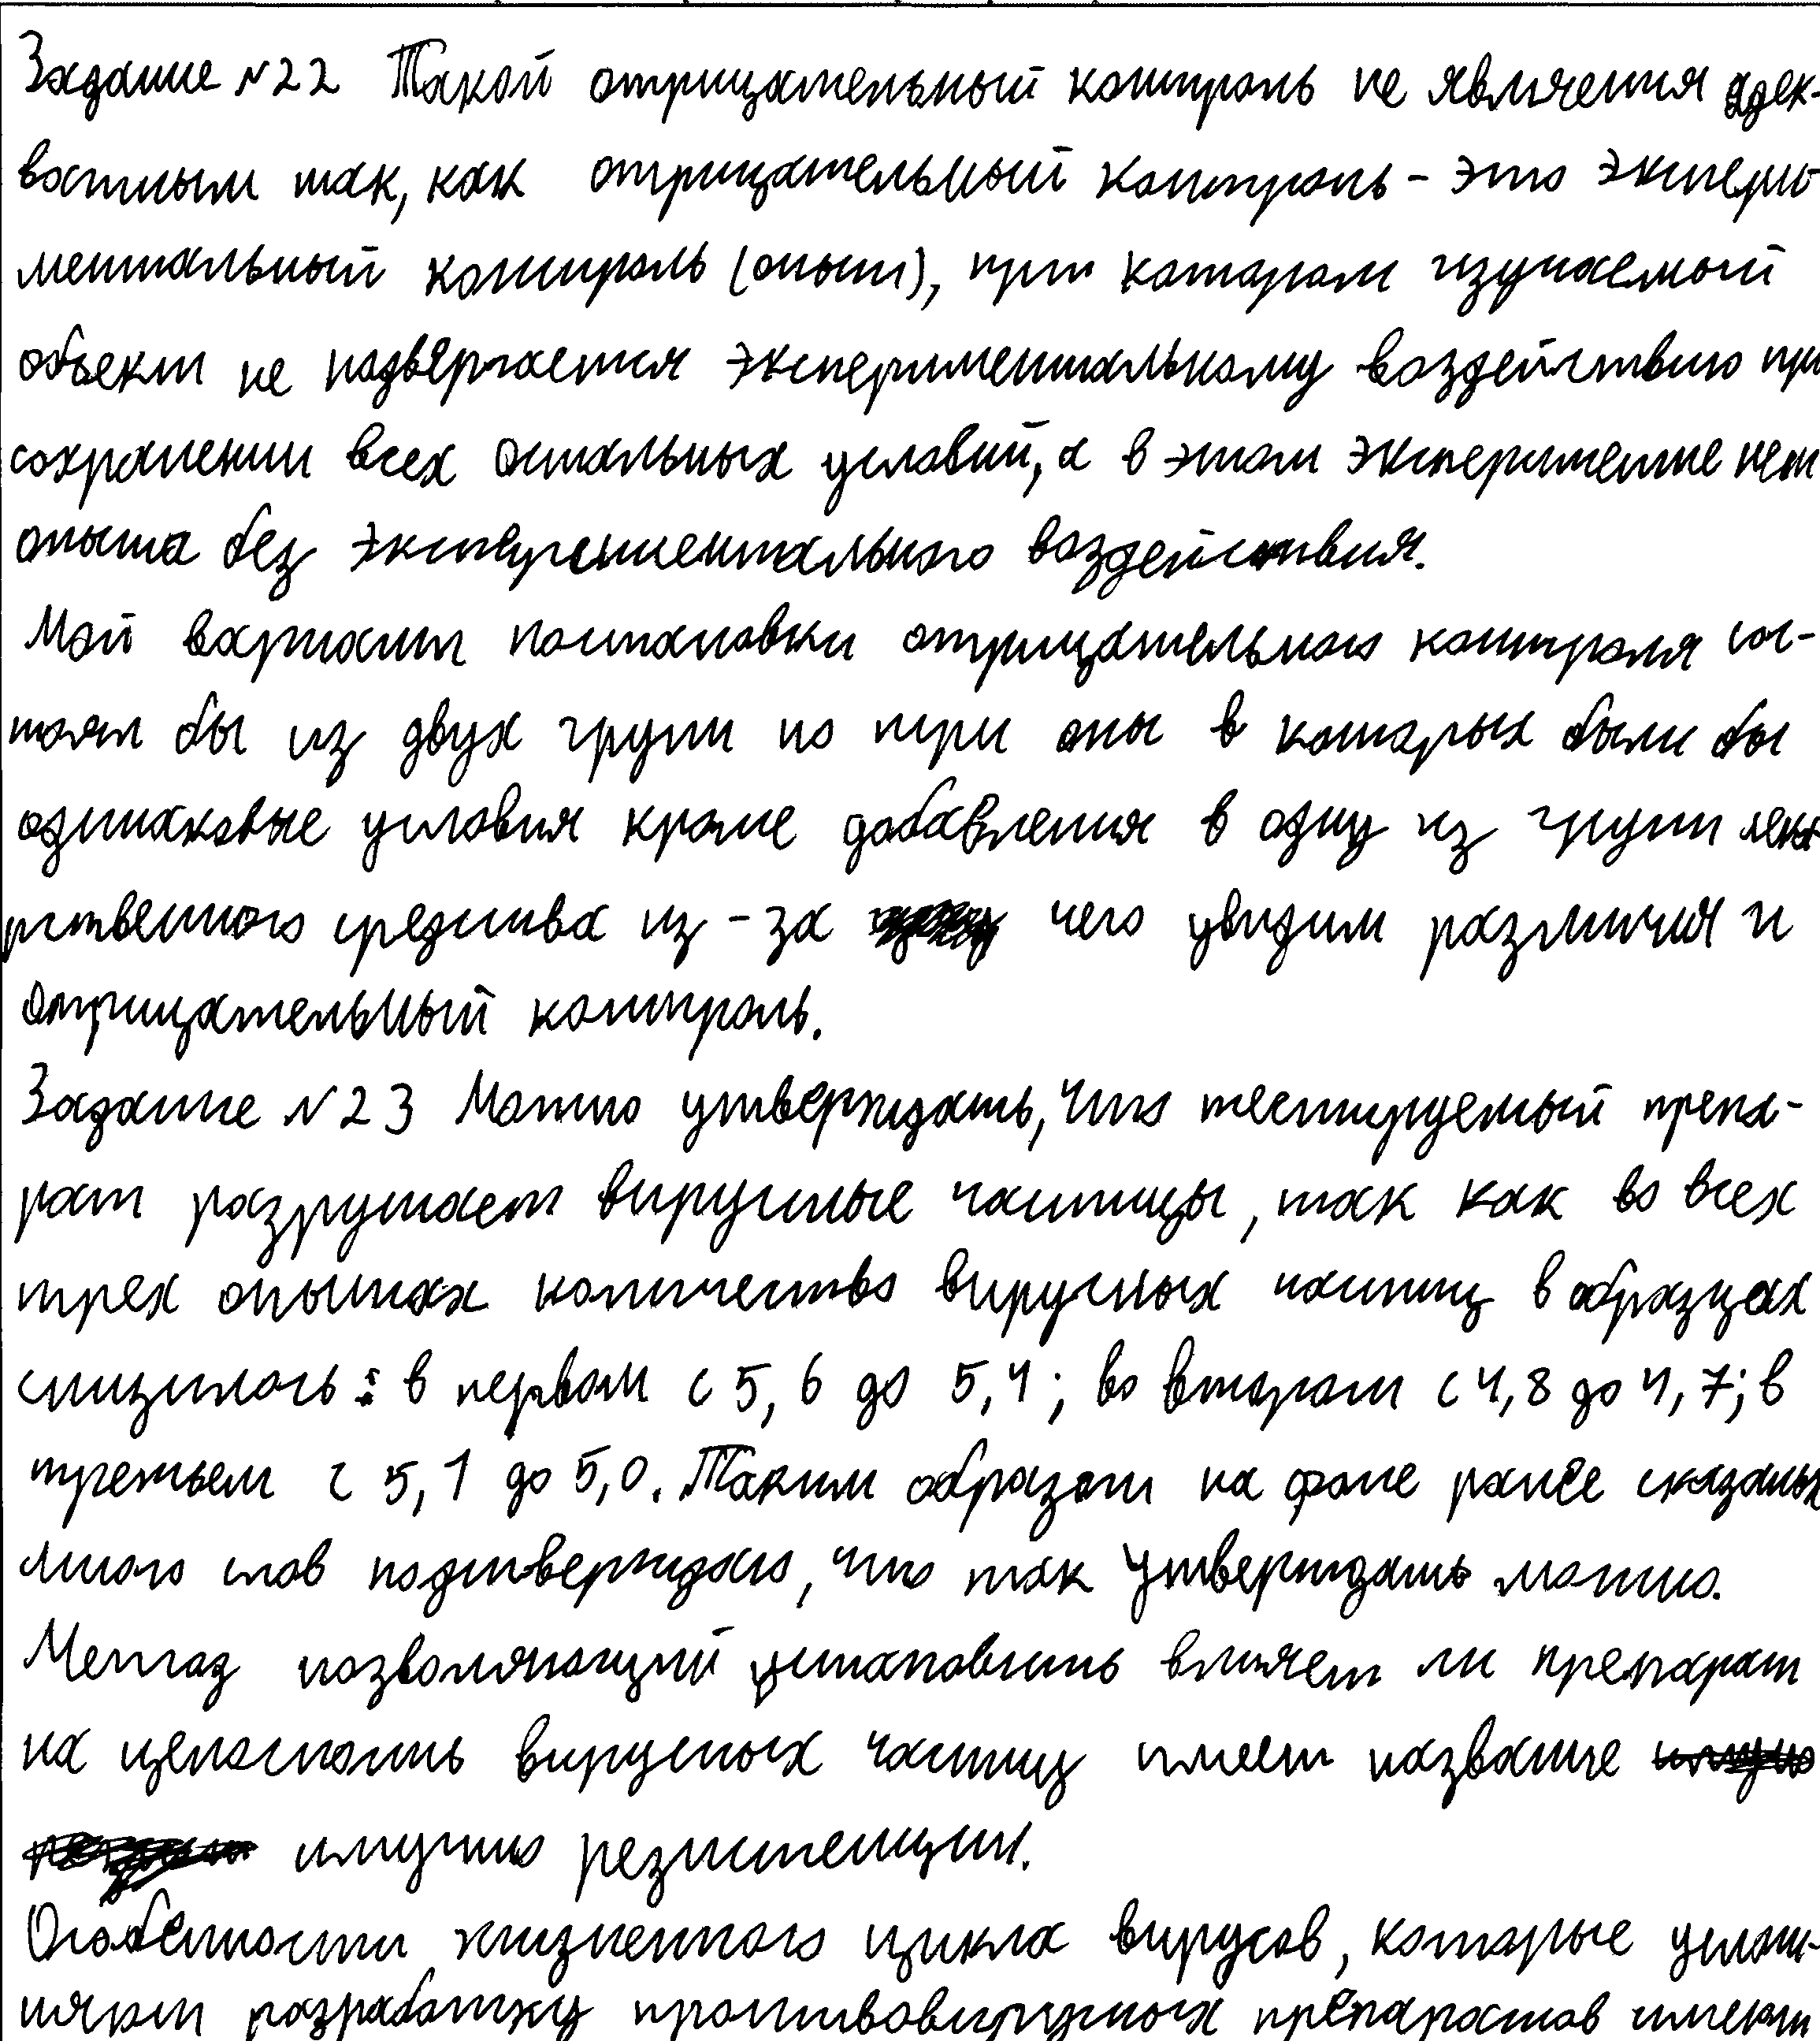 Задание №22 Такой отрицательный контроль не является адек-
ватным так, как отрицательный контроль - это экспери-
ментальный контроль (опыт), при котором изучаемый
объект не подвергается экспериментальному воздействию при
сохранении всех остальных условий, а в этом эксперименте нет
опыта без экспериментального воздействия.
Мой вариант постановки отрицательного контроля сос-
тоял бы из двух групп по три опы в которых были бы
одинаковые условия кроме добавления в одну из групп лека-
рственного средства из-за чего увидим различия и
отрицательный контроль.
Задание №23 Можно утверждать, что тестируемый препа-
рат разрушает вирусные частицы, так как во всех
трех опытах количество вирусных частиц в образцах
снизилось: в первом с 5,6 до 5,4; во втором с 4,8 до 4,7; в
третьем с 5,1 до 5,0. Таким образом на фоне ранее сказанных
мною слов подтверждаю, что так утверждать можно.
Метод позволяющий установить влияет ли препарат
на целостность вирусных частиц имеет название
имунно резистенции.
Особенности жизненного цикла вирусов, которые услож-
няют разработку противовирусных препаратов имеют